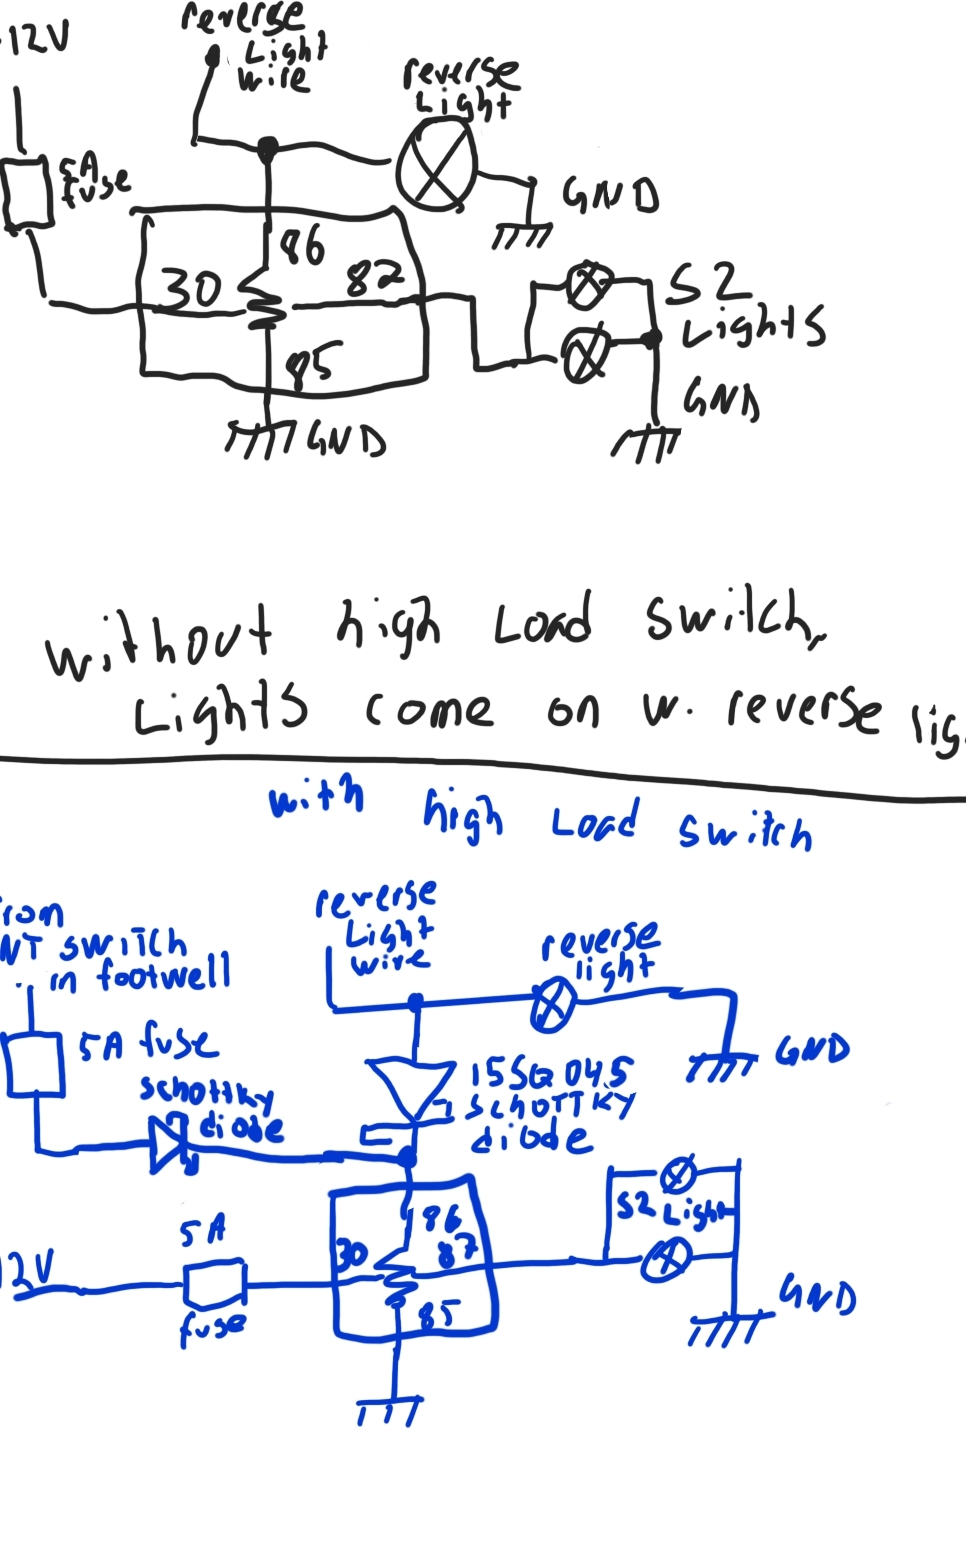 12V
reverse
Light
wire
reverse
Light
5A
fuse
GND
86
30
82
S2
Lights
85
GND
GND
without high Load switch,
Lights come on w. reverse lig
with high Load switch
rom
NT switch
in footwell
reverse
Light
wire
reverse
light
5A fuse
GND
schottky
diode
15SQ045
SCHOTTKY
diode
S2 Light
86
5A
30
87
2V
GND
85
fuse